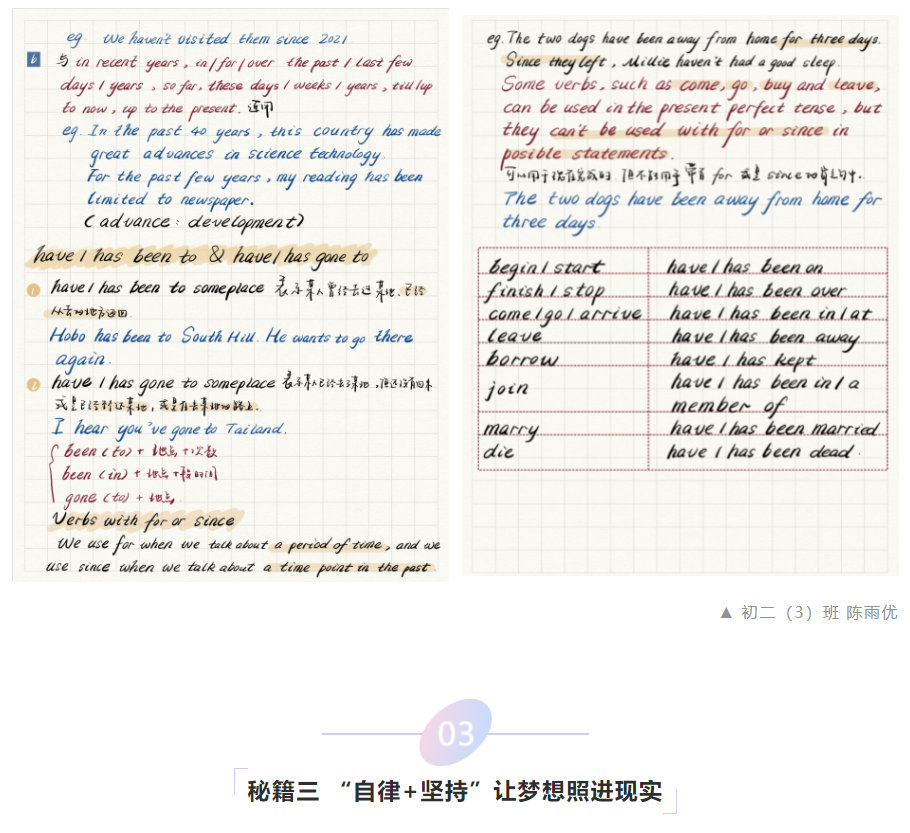 eg. We haven't visited them since 2021.
b 与 in recent years, in/for/over the past/last few
days/years, so far, these days/weeks/years, till/up
to now, up to the present. 连用
eg. In the past 40 years, this country has made
great advances in science technology.
For the past few years, my reading has been
limited to newspaper.
(advance: development)
have/has been to & have/has gone to
have/has been to someplace 表示某人曾经去过某地, 已经
从去的地方返回
Hobo has been to South Hill. He wants to go there
again.
have/has gone to someplace 表示某人已经去了某地, 但还没有回来
或是已经到达某地, 或是在去某地的路上.
I hear you've gone to Tailand.
been (to) + 地点 + 次数
been (in) + 地点 + 一段时间
gone (to) + 地点
Verbs with for or since
We use for when we talk about a period of time, and we
use since when we talk about a time point in the past
eg. The two dogs have been away from home for three days.
Since they left, Millie haven't had a good sleep.
Some verbs, such as come, go, buy and leave,
can be used in the present perfect tense, but
they can't be used with for or since in
posible statements.
可以用于现在完成时 但不能用于带有 for 或是 since 的肯定句中.
The two dogs have been away from home for
three days.
begin/start have/has been on
finish/stop have/has been over
come/go/arrive have/has been in/at
leave have/has been away
borrow have/has kept
join have/has been in/a
member of
marry have/has been married
die have/has been dead.
▲ 初二（3）班 陈雨优
03
秘籍三 “自律+坚持”让梦想照进现实